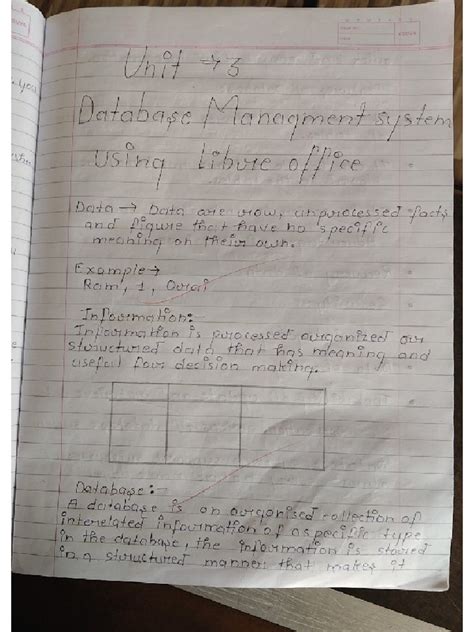 Unit → 3
Database Managment system
using Libure office
Data → Data are row, unprocessed facts
and figure that have no specific
meaning on their own.
Example →
Ram, 1,
Information:-
Information is processed ourganized our
structured data that has meaning and
useful four decision making.
Database :-
A database is an ourganised collection of
interelated information of a specific type
in the database, the information is stored
in a structured manner that makes it